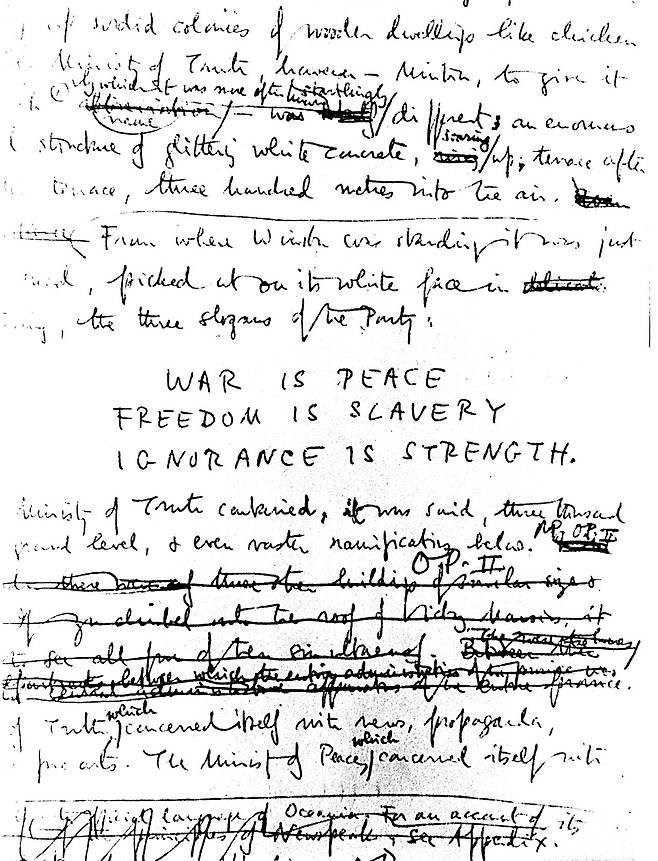 of sordid colonies of wooden dwellings like chicken
Ministry of Truth, however — Minitru, to give it
by which it was more often known startlingly
abbreviation name / — was / different; an enormous
structure of glittering white concrete, rising soaring / up, terrace after
terrace, three hundred metres into the air. Even
From where Winston was standing it was just
picked out on its white face in delicate
the three slogans of the Party:
WAR IS PEACE
FREEDOM IS SLAVERY
IGNORANCE IS STRENGTH.
Ministry of Truth contained, it was said, three thousand
ground level, & even vaster ramifications below. O.P. II
O.P. II
there were three other buildings of similar size &
if you climbed onto the roof of Victory Mansions, it
to see all four of them simultaneously. Between
between which the entire administration of the province
apparatus of the entire province.
of Truth, which / concerned itself with news, propaganda,
arts. The Ministry of Peace, which / concerned itself with
official language of Oceania. For an account of its
of Newspeak, see Appendix.